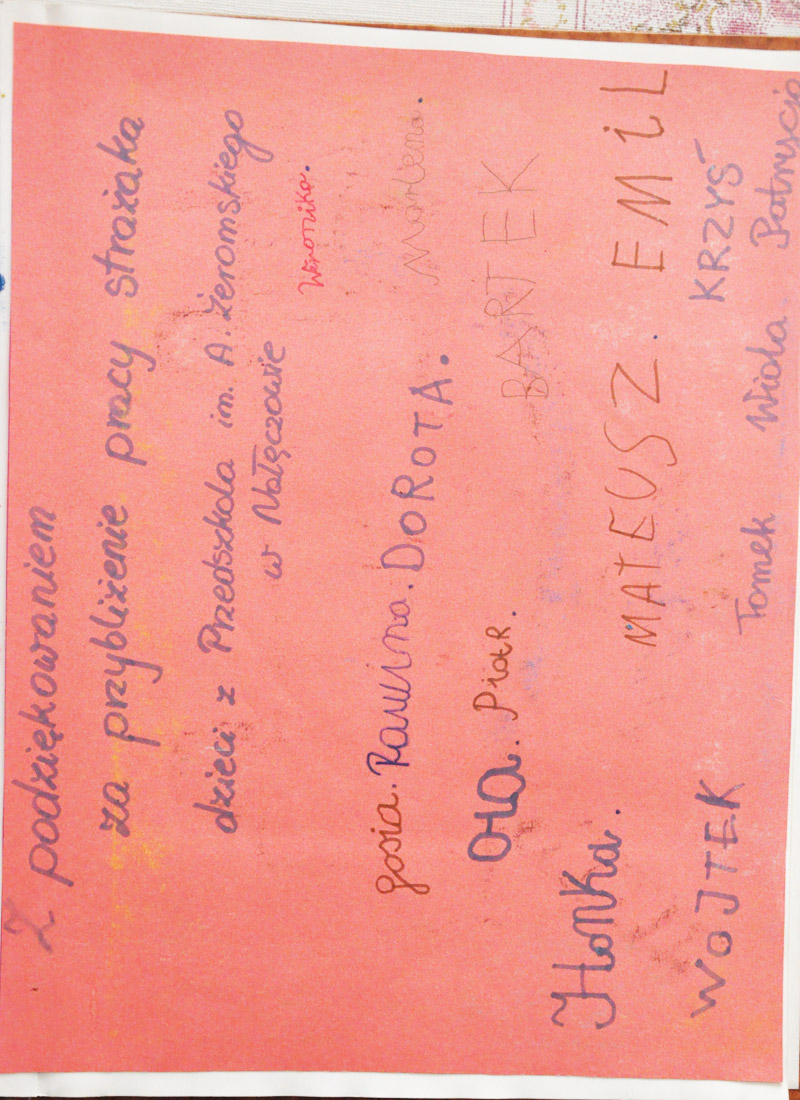 Z podziękowaniem
za przybliżenie pracy strażaka
dzieci z Przedszkola im. A. Żeromskiego
w Nałęczowie
Wironika.
gosia. Paulina. DOROTA. Marlena.
OlA. PiotR. BARTEK
Ilonka. MATEUSZ. EMiL
WOJTEK KRZYŚ
Tomek Wiola Patrycja